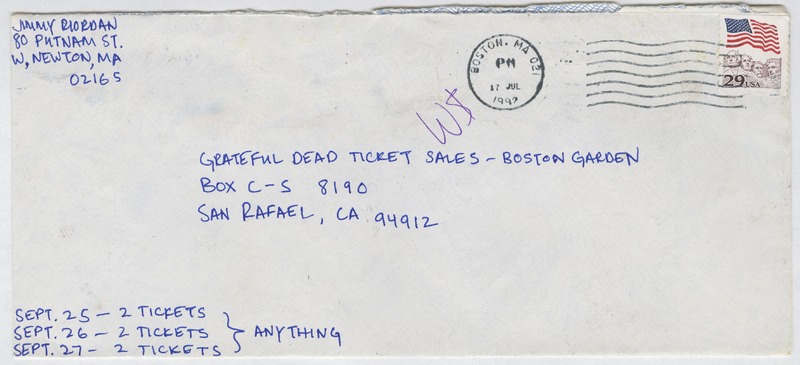 JIMMY RIORDAN
80 PUTNAM ST.
W, NEWTON, MA
02165
BOSTON, MA 021
PM
17 JUL
1992
29 USA
W$
GRATEFUL DEAD TICKET SALES - BOSTON GARDEN
BOX C-S 8190
SAN RAFAEL, CA 94912
SEPT. 25 - 2 TICKETS
SEPT. 26 - 2 TICKETS } ANYTHING
SEPT. 27 - 2 TICKETS